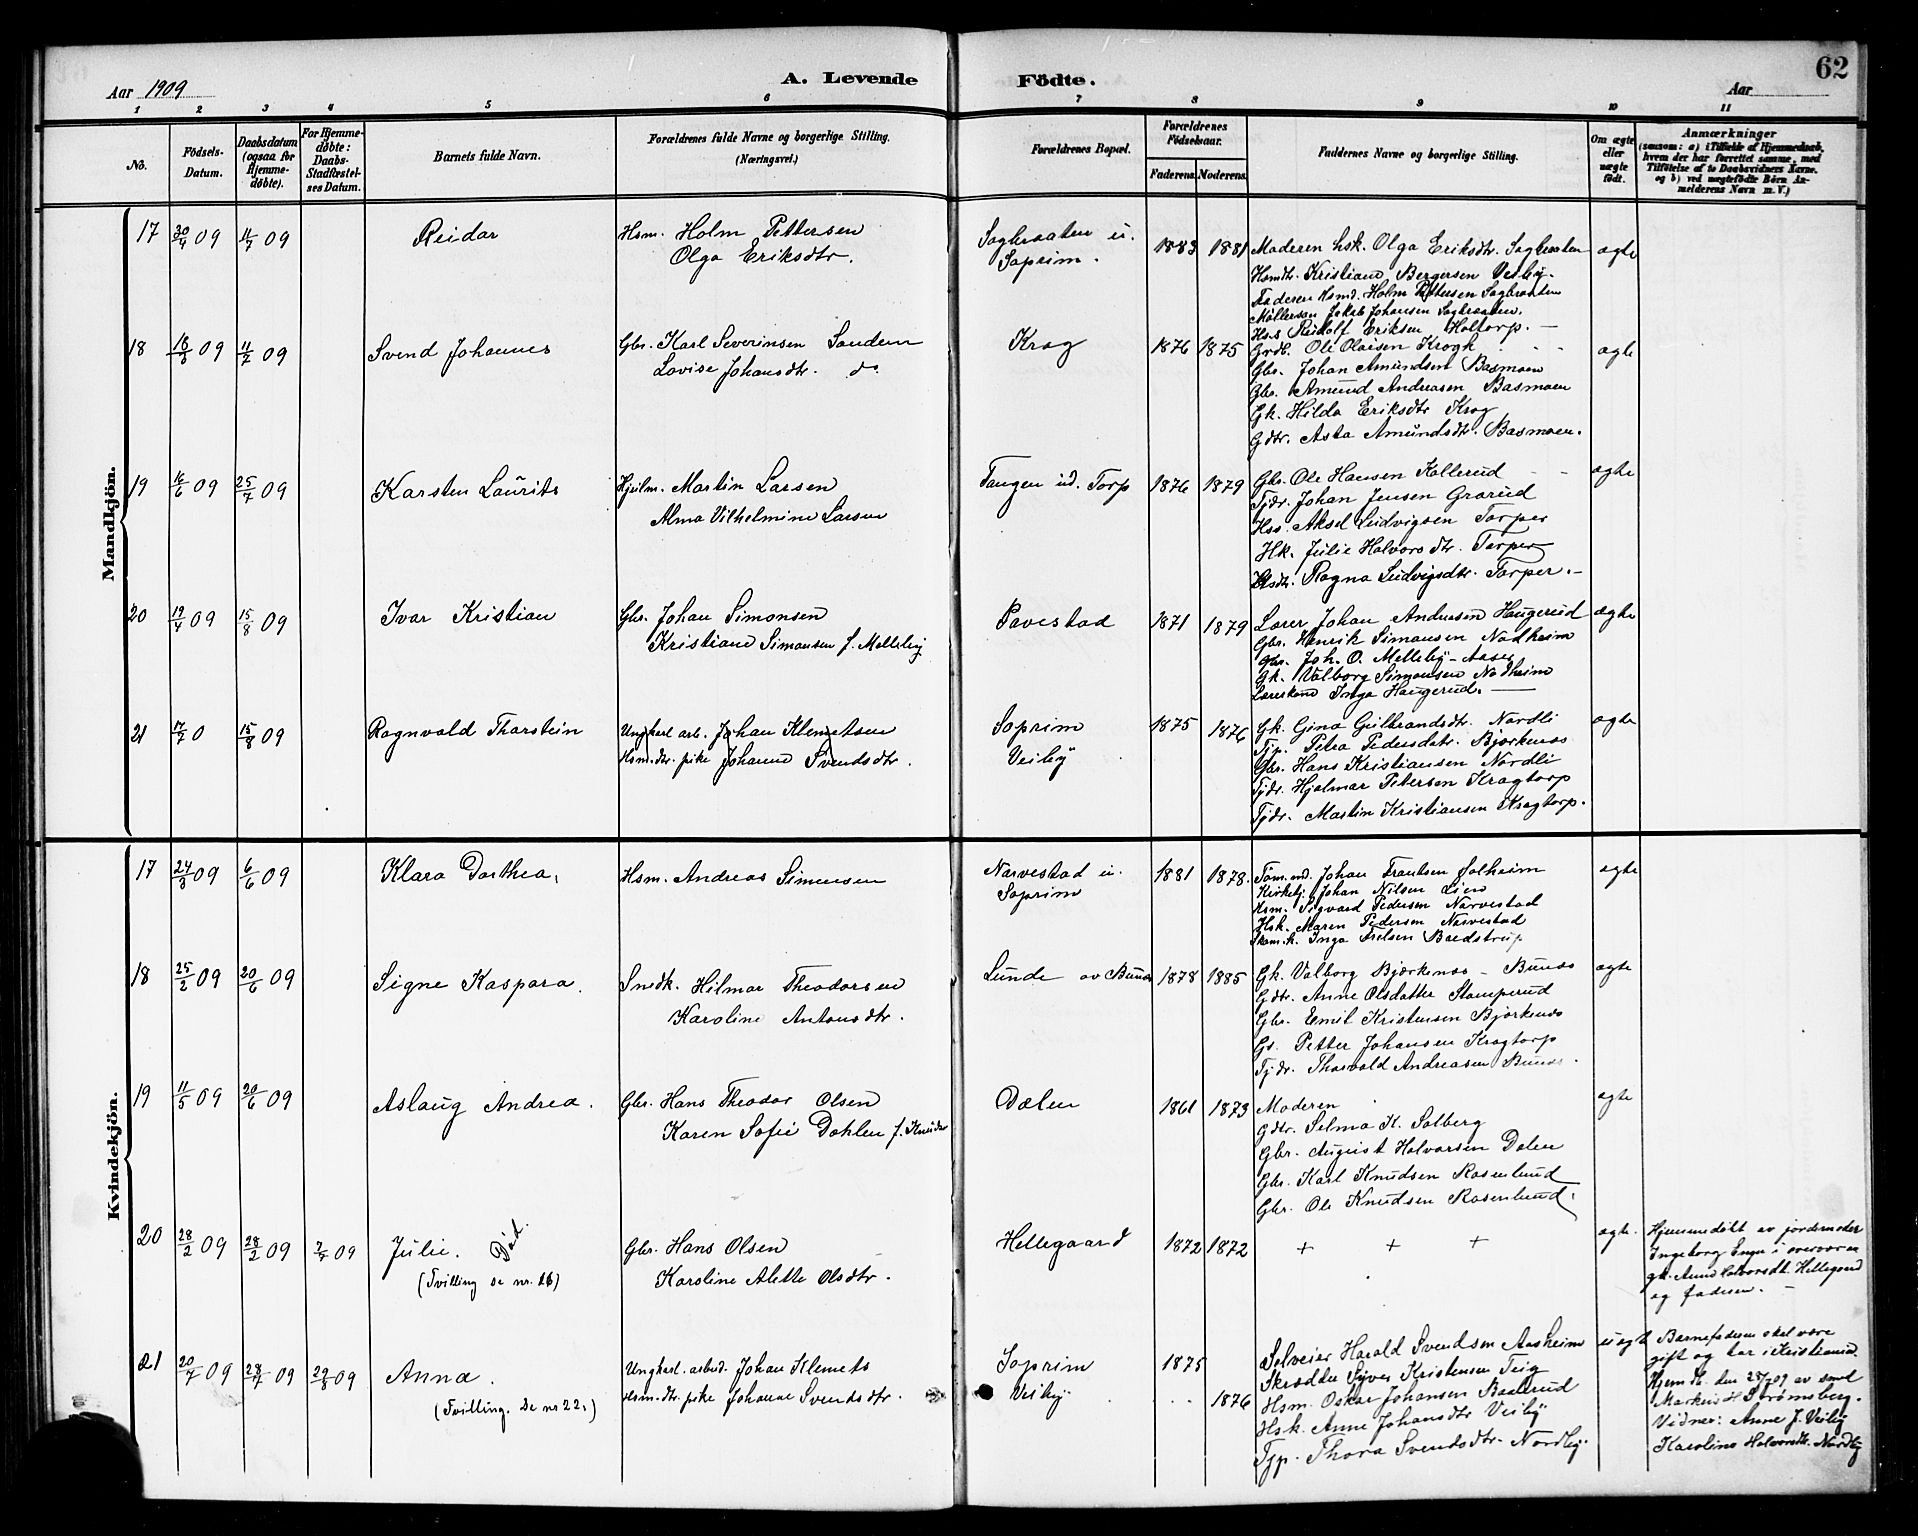 Aar 1909
A. Levende Födte.
Aar
62
1 2 3 4 5 6 7 8 9 10 11
Nö.
Födsels-Datum.
Daabsdatum (ogsaa for Hjemme-døbte).
For Hjemme-døbte: Daabs-Stadfæstel-ses Datum.
Barnets fulde Navn.
Forældrenes fulde Navne og borgerlige Stilling.
(Næringsvei.)
Forældrenes Bopæl.
Forældrenes Födselsaar.
Faderens. Moderens.
Faddernes Navne og borgerlige Stilling.
Om ægte eller uægte födt.
Anmærkninger
(saasom: a) i Tilfælde af Hjemmedaab,
hvem der har forrettet samme, med
Tilföielse af to Daabsvidners Navne.
og b) ved uægtefödte Börn An-
melderens Navn m. V.)
Mandkjön.
17 30/4 09 11/7 09 Reidar
Hsm. Holm Pettersen
Olga Eriksdtr.
Sagbraaten u.
Soprim.
1883 1881
Moderen hsk. Olga Eriksdtr. Sagbraaten
Hsmdtr. Kristiane Bergersen Veiby.
Faderen Hsmd. Holm Pettersen Sagbraaten
Möllersøn Jakob Johansen Sagbraaten.
Hss. Rudolf Eriksen Holtorp. -
ægte
18 09 11/7 09 Svend Johannes
Gbr. Karl Severinsen Sandem
Lovise Johansdtr. do
Krog
1876 1875
Grdb. Ole Olaisen Krogh
Gbr. Johan Amundsen Basmoen
Gbr. Amund Andreasen Basmoen
Gk. Hilda Eriksdtr Krog
Gdtr. Asta Amundsdtr. Basmoen.
ægte
19 16/6 09 25/7 09 Karsten Laurits
Hjulm. Martin Larsen
Alma Vilhelmine Larsen
Tangen ud. Torp
1876 1879
Gbr. Ole Hansen Kollerud
Tjdr. Johan Jensen Grarud
Hss. Aksel Ludvigsen Torper
Hk. Julie Halvorsdtr. Torper
Hsdtr. Ragna Ludvigsdtr. Torper.-
ægte
20 19/4 09 15/8 09 Ivar Kristian
Gbr. Johan Simonsen
Kristiane Simonsen f. Melleby
Pavestad
1871 1879
Lærer Johan Andersen Haugerud
Gbr. Henrik Simonsen Nadheim
Gbr. Joh. O. Melleby - Aaser
Gk. Valborg Simonsen Nadheim
Lærerkone Inga Haugerud.
ægte
21 17/7 0 15/8 09 Ragnvald Thorstein
Ungkarl arb. Johan Klemetsen
Hsm.dtr. pike Johanne Svendsdtr.
Soprim
Veiby
1875 1876
Gk. Gina Gulbrandsdtr. Nordli
Tjp. Petra Pedersdtr. Bjørkenes
Gbr. Hans Kristiansen Nordli
Tjdr. Hjalmar Petersen Kragtorp
Tjdr. Martin Kristiansen Kragtorp.
ægte
Kvindekjön.
17 24/3 09 6/6 09 Klara Dorthea.
Hsm. Andreas Simensen
Narvestad u.
Soprim
1881 1878.
Töm.md. Johan Frantsen Solheim
Kirketj. Johan Nilsen Lien
Hsm. Sigvard Pedersen Narvestad
Hsk. Maren Pedersen Narvestad
Inga Bredstrup
ægte
18 25/2 09 20/6 09 Signe Kaspara.
Snedk. Hilmar Theodorsen
Karoline Antonsdtr.
Lunde av Bunes
1878 1885
Gk. Valborg Bjørkenes - Bunæs
Gdtr. Anne Olsdatter Stamperud
Gbr. Emil Kristensen Bjørkenes
Gs. Petter Johansen Kragtorp
Tjdr. Thorvald Andreasen Bunæs.
ægte
19 11/5 09 20/6 09 Aslaug Andrea.
Gbr. Hans Theodor Olsen
Karen Sofie Dahlen f. Knudsen
Dalen
1861 1873
Moderen
Gdtr. Selma K. Solberg
Gbr. August Halvorsen Dalen
Gbr. Karl Knudsen Rosenlund
Gbr. Ole Knudsen Rosenlund.
ægte
20 28/2 09 28/2 09 09 Julie. Död.
(Tvilling se nr. 16)
Gbr. Hans Olsen
Karoline Alette Olsdtr.
Hellegaard
1872 1872
+ + +
ægte.
Hjemmedöbt av jordemoder
Ingeborg Engen i overvær av
gk. Anne Halvorsdt. Hellegaard
og faderen. -
21 20/7 09 28/7 09 29/8 09 Anna.
(Tvilling. Se nr 22.)
Ungkarl. arbeid. Johan Klemets
Hsm.dtr. pike Johanne Svendsdtr.
Soprim
Veiby.
1875
1876
Harald Svendsen Aasheim
Skrædder Syver Kristensen Teig
Hsm. Oskar Johansen Baterud
Hsk. Anne Johansdtr Veiby
Tjp. Thora Svendsdtr. Nordby.
uægt
Barnefaderen skal være
gift og bor i Kristiania.
Hjemd. den 28/7 09 av smed
Markus H Strømsberg.
Vidner: Anne J. Veiby
Karoline Halvorsdtr. Nordby